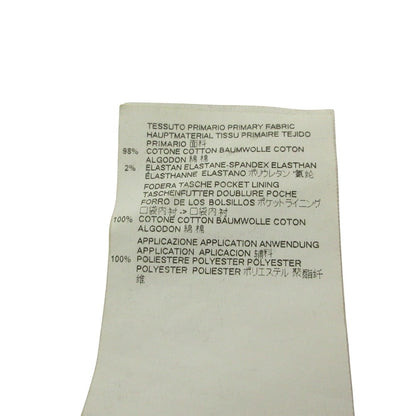 TESSUTO PRIMARIO PRIMARY FABRIC
HAUPTMATERIAL TISSU PRIMAIRE TEJIDO
PRIMARIO 面料
98% COTONE COTTON BAUMWOLLE COTON
ALGODON 綿 棉
2% ELASTAN ELASTANE-SPANDEX ELASTHAN
ÉLASTHANNE ELASTANO ポリウレタン 氨纶
FODERA TASCHE POCKET LINING
TASCHENFUTTER DOUBLURE POCHE
FORRO DE LOS BOLSILLOS ポケットライニング
口袋内衬 -> 口袋内衬
100% COTONE COTTON BAUMWOLLE COTON
ALGODON 綿 棉
APPLICAZIONE APPLICATION ANWENDUNG
APPLICATION APLICACION 辅料
100% POLIESTERE POLYESTER POLYESTER
POLYESTER POLIESTER ポリエステル 聚酯纤
维